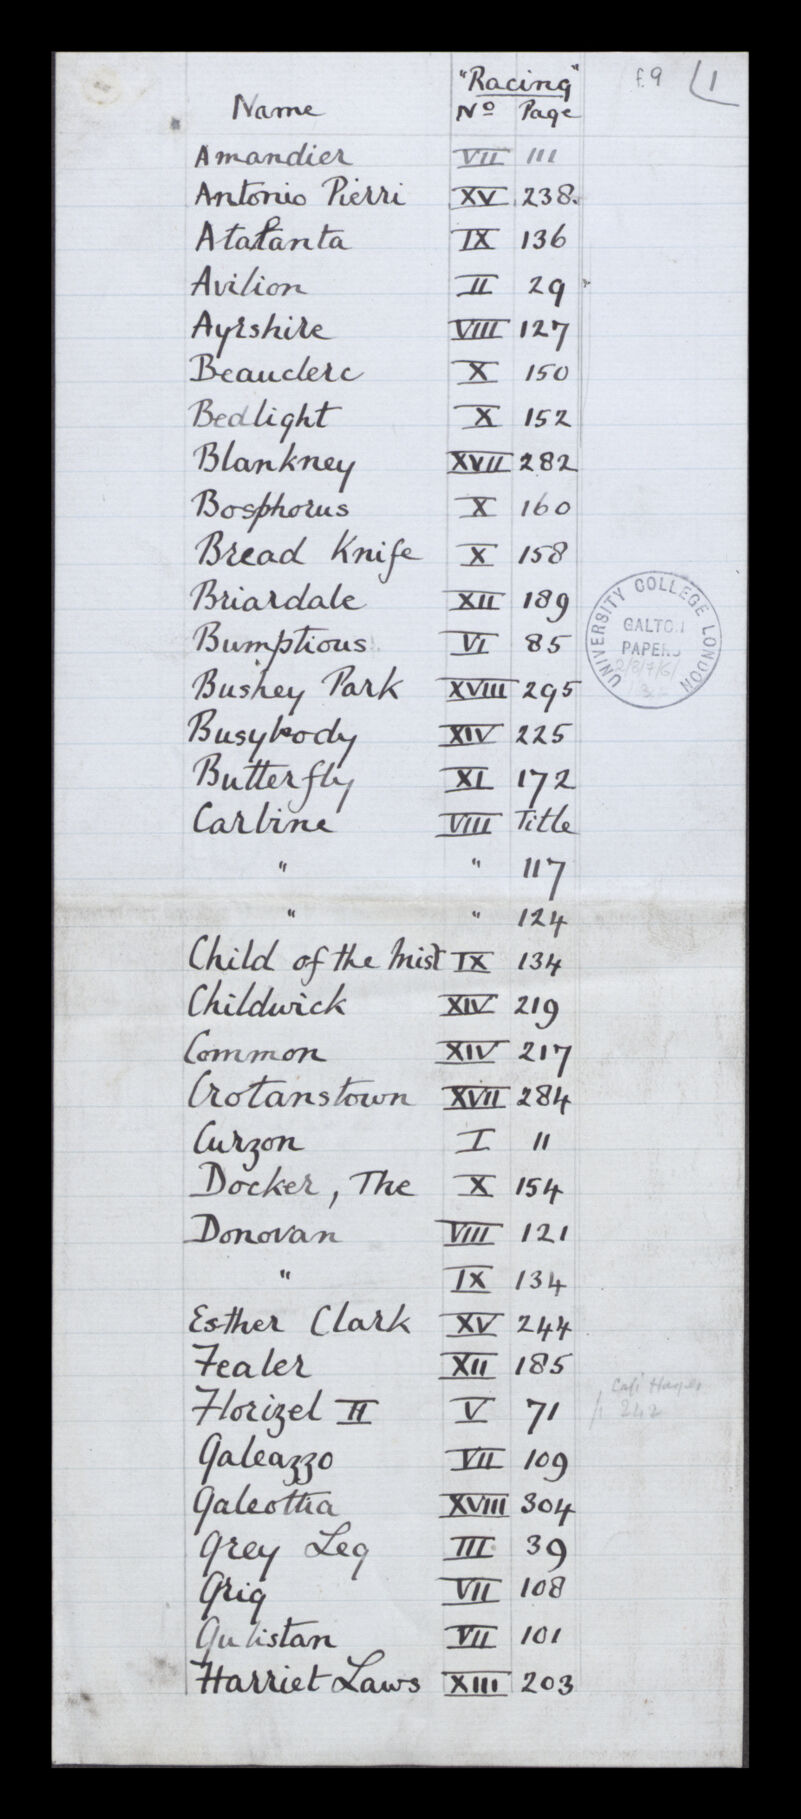 "Racing" f.9 1
Name Nº Page
Amandier VII 111
Antonio Pierri XV 238.
Atalanta IX 136
Avilion II 29
Ayrshire VIII 127
Beauclerc X 150
Bedlight X 152
Blankney XVII 282
Bosphorus X 160
Bread Knife X 158
Briardale XII 189
Bumptious VI 85
Bushey Park XVIII 295
Busybody XIV 225
Butterfly XI 172
Carbine VIII Title
" " 117
" " 124
Child of the Mist IX 134
Childwick XIV 219
Common XIV 217
Crotanstown XVII 284
Curzon I 11
Docker, The X 154
Donovan VIII 121
" IX 134
Esther Clark XV 244
Fealer XII 185
Florizel II V 71
Galeazzo VII 109
Galeottia XVIII 304
Grey Leg III 39
Grig VII 108
Gulistan VII 101
Harriet Laws XIII 203
UNIVERSITY COLLEGE LONDON
GALTON
PAPERS
242